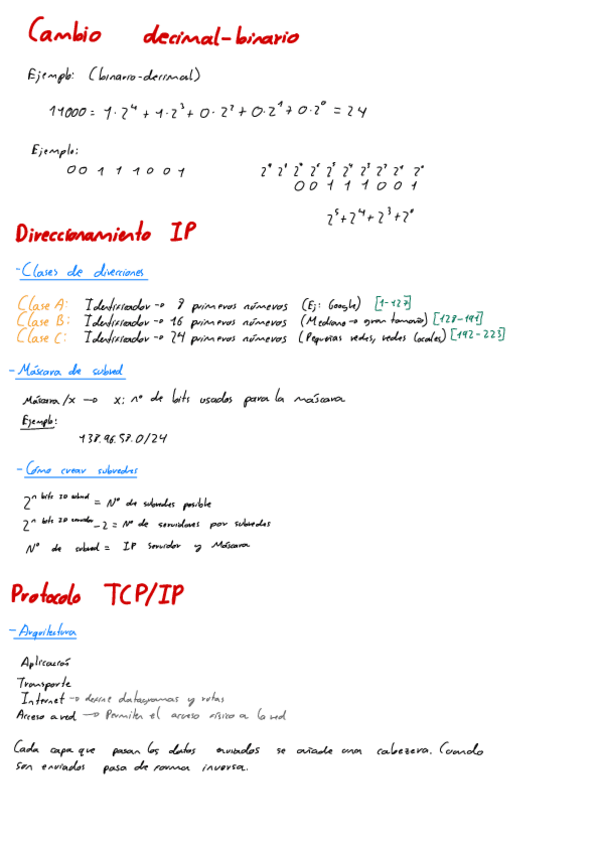 Cambio decimal-binario
Ejemplo: (binario-decimal)
11000 = 1·2⁴ + 1·2³ + 0·2² + 0·2¹ + 0·2⁰ = 24
Ejemplo:
0 0 1 1 1 0 0 1
2⁵ 2⁴ 2³ 2² 2¹ 2⁰
0 0 1 1 1 0 0 1
2⁵ + 2⁴ + 2³ + 2⁰
Direccionamiento IP
- Clases de direcciones
Clase A: Identificador → 8 primeros números (Ej: Google) [1-127]
Clase B: Identificador → 16 primeros números (Mediano → gran tamaño) [128-191]
Clase C: Identificador → 24 primeros números (Pequeñas redes, redes locales) [192-223]
- Máscara de subred
Máscara /x → x: nº de bits usados para la máscara
Ejemplo:
138.96.58.0/24
- Cómo crear subredes
2ⁿ ᵇⁱᵗˢ ᴵᴰ ˢᵘᵇʳᵉᵈ = Nº de subredes posible
2ⁿ ᵇⁱᵗˢ ᴵᴰ -2 = Nº de servidores por subredes
Nº de subred = IP servidor y Máscara
Protocolo TCP/IP
- Arquitectura
Aplicación
Transporte
Internet → define datagramas y rutas
Acceso a red → Permiten el acceso físico a la red
Cada capa que pasan los datos enviados se añade una cabezera. Cuando
son enviados pasa de forma inversa.